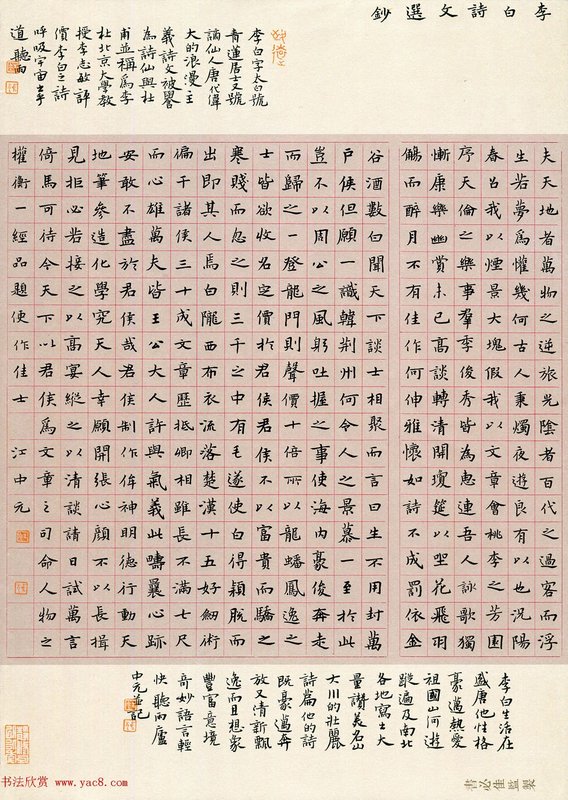 李白詩文選鈔
李白字太白號
青蓮居士又號
謫仙人唐代偉
大的浪漫主
義詩文被譽
為詩仙與杜
甫並稱為李
杜北京大學教
授李志敏評
價李白之詩
呼吸宇宙出乎
道聽雨
夫天地者萬物之逆旅光陰者百代之過客而浮
生若夢為懽幾何古人秉燭夜遊良有以也況陽
春召我以煙景大塊假我以文章會桃李之芳園
序天倫之樂事羣季俊秀皆為惠連吾人詠歌獨
慚康樂幽賞未已高談轉清開瓊筵以坐花飛羽
觴而醉月不有佳作何伸雅懷如詩不成罰依金
谷酒數白聞天下談士相聚而言曰生不用封萬
戶侯但願一識韓荆州何令人之景慕一至於此
豈不以周公之風躬吐握之事使海內豪俊奔走
而歸之一登龍門則聲價十倍所以龍蟠鳳逸之
士皆欲收名定價於君侯君侯不以富貴而驕之
寒賤而忽之則三千之中有毛遂使白得穎脫而
出即其人焉白隴西布衣流落楚漢十五好劍術
徧干諸侯三十成文章歷抵卿相雖長不滿七尺
而心雄萬夫皆王公大人許與氣義此疇曩心跡
安敢不盡於君侯哉君侯制作侔神明德行動天
地筆參造化學究天人幸願開張心顏不以長揖
見拒必若接之以高宴縱之以清談請日試萬言
倚馬可待今天下以君侯為文章之司命人物之
權衡一經品題便作佳士 江中元
李白生活在
盛唐他性格
豪邁熱愛
祖國山河遊
蹤遍及南北
各地寫出大
量讚美名山
大川的壯麗
詩篇他的詩
既豪邁奔
放又清新飄
逸而且想象
豐富意境
奇妙語言輕
快聽雨廬
中元並記
書必隹監製
书法欣赏 www.yac8.com